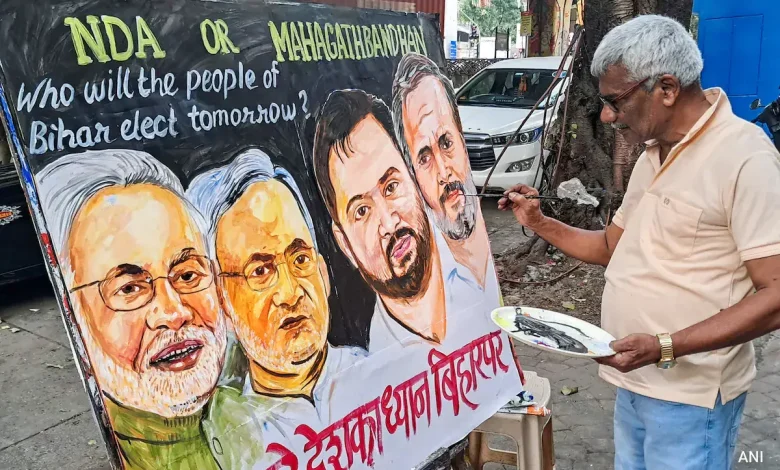 NDA OR MAHAGATHBANDHAN
Who will the people of
Bihar elect tomorrow?
देशका ध्यान बिहारपर
ANI